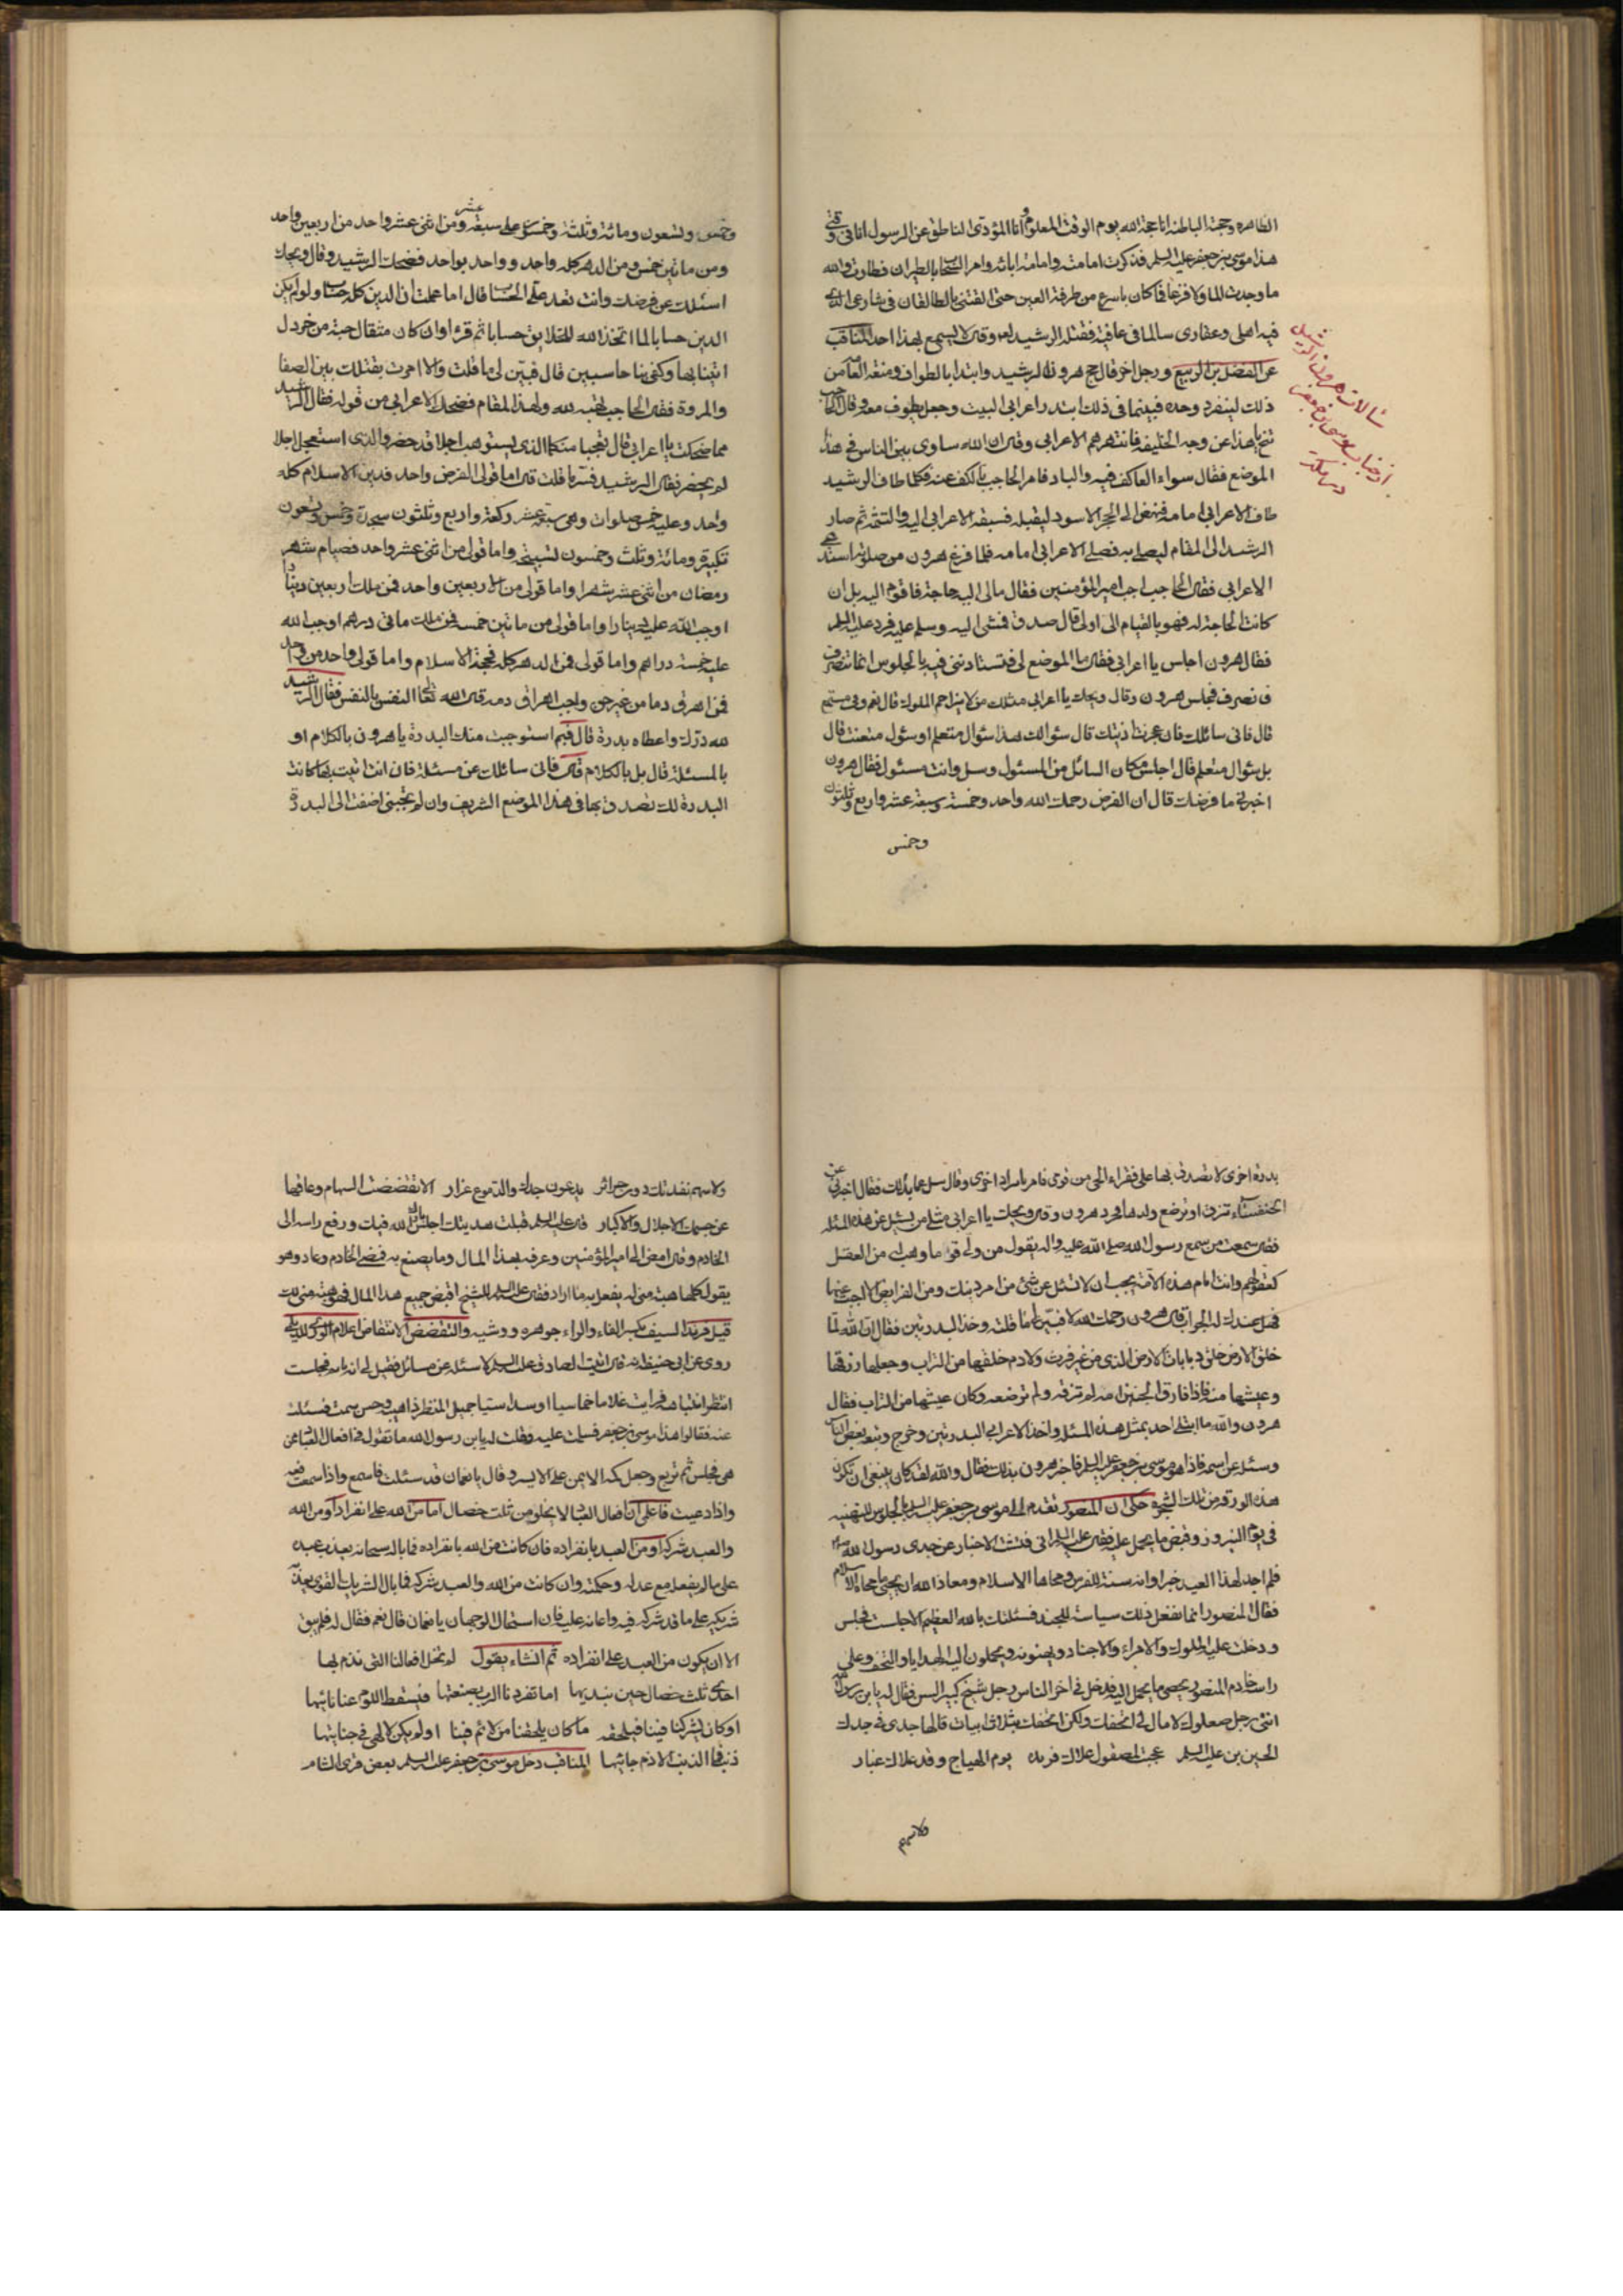 الظاهرة وحجته الباطنة انا حجة الله يوم الوقت المعلوم وانا المؤدى الناطق عن الرسول انا فى وقتى
هذا موسى بن جعفر عليه السلم فذكرت امامته وامامة ابائه وامر السحاب بالطيران فطارت فو الله
ما وجدت الما ولا فزعا فما كان باسرع من طرفة العين حتى القتنى بالطالقان فى شارعى الذى
فيه اهلى وعقارى سالما فى عافية فقتله الرشيد لعه وقال لا يسمع بهذا احد المناقب
عن الفضل بن الربيع ورجل اخر قال حج هرون الرشيد وابتدا بالطواف ومنعت العامه من
ذلك لينفرد وحده فبينما فى ذلك ابتدر اعرابى البيت وجعل يطوف معه وقال الحاجب
تنح يا هذا عن وجه الخليفه فانتهرهم الاعرابى وقال ان الله ساوى بين الناس فى هذا
الموضع فقال سواء العاكف فيه والباد فامر الحاجب بالكف عنه فكلما طاف الرشيد
طاف الاعرابى امامه فنهض الى الحجر الاسود ليقبله فسبقه الاعرابى اليه والتثمه ثم صار
الرشيد الى المقام ليصلى به فصلى الاعرابى امامه فلما فرغ هرون من صلوته استدعى
الاعرابى فقال الحاجب اجب امير المؤمنين فقال مالى اليه حاجة فاقوم اليه بل ان
كانت الحاجة له فهو بالقيام الى اولى قال صدق فمشى اليه وسلم عليه فرد عليه السلم
فقال هرون اجلس يا اعرابى فقال ما الموضع لى فتستاذننى فيه بالجلوس انما
قال فانى سائلك فان عجزت اذيتك قال سؤالك هذا سؤال متعلم او سؤال متعنت قال
بل سؤال متعلم قال اجلس مكان السائل من المسئول وسل وانت مسئول فقال هرون
اخبرنى ما فرضك قال ان الفرض رحمك الله واحد وخمسة وسبعة عشر واربع وثلثون
وخمس
سئالات هرون الرشيد
وخمس وتسعون ومائة وثلثة وخمسون على سبعة عشر ومن اثنى عشر واحد من اربعين واحد
ومن مائتين خمس ومن الدهر كله واحد وواحد بواحد فضحك الرشيد وقال ويحك
اسئلك عن فرضك وانت تعد على الحساب قال اما علمت ان الدين كله حساب ولو لم يكن
الدين حسابا لما اتخذ الله للخلايق حسابا ثم قرء وان كان مثقال حبة من خردل
اتينا بها وكفى بنا حاسبين قال فبين لى ما قلت والا امرت بقتلك بين الصفا
والمروة فقال الحاجب تهبه لله ولهذا المقام فضحك الاعرابى من قوله فقال الرشيد
مما ضحكت يا اعرابى قال تعجبا منكما الذى يستوهب اجلا قد حضر والذى استعجل اجلا
لم يحضر فقال الرشيد فسر ما قلت قال اما قولى الفرض واحد فدين الاسلام كله
واحد وعليه خمس صلوات وهى سبعة عشر ركعة واربع وثلثون سجدة وخمس وتسعون
تكبيرة ومائة وثلث وخمسون تسبيحة واما قولى من اثنى عشر واحد فصيام شهر
رمضان من اثنى عشر شهرا واما قولى من الاربعين واحد فمن ملك اربعين دينارا
اوجب الله عليه دينارا واما قولى من مائتين خمسة فمن ملك مائتى درهم اوجب الله
عليه خمسة دراهم واما قولى فمن الدهر كله فحجة الاسلام واما قولى واحد من واحد
فمن اهرق دما من غير حق وجب اهراق دمه قال الله تعالى النفس بالنفس فقال الرشيد
لله درك واعطاه بدرة قال فبم استوجبت منك البدرة يا هرون بالكلام او
بالمسئلة قال بل بالكلام قال فانى سائلك عن مسئلة فان انت اتيت بها كانت
البدرة لك تصدق بها فى هذا الموضع الشريف وان لم تجبنى اضفت الى البدرة
بدرة اخرى لا تصدق بها على فقراء الحى من قومى فامر بايراد اخرى وقال سل عما بدا لك فقال اخبرنى عن
الخنفساء تزق او ترضع ولدها فحرد هرون وقال ويحك يا اعرابى مثلى من يسئل عن هذه المسئله
فقال سمعت من سمع رسول الله صلى الله عليه واله يقول من ولى قوما وهب له من العقل
كعقولهم وانت امام هذه الامة يجب ان لا تسئل عن شئ من امر دينك ومن الفرايض الا اجبت عنها
فهل عندك له الجواب قال هرون رحمك الله لا فبين لى ما قلته وخذ البدرتين فقال ان الله لما
خلق الارض خلق دبابات الارض الذى من غير فرث ولا دم خلقها من التراب وجعل رزقها
وعيشها منه فاذا فارق الجنين امه لم تزقه ولم ترضعه وكان عيشها من التراب فقال
هرون والله ما ابتلى احد بمثل هذه المسئله واخذ الاعرابى البدرتين وخرج وتبعه بعض الناس
وسئله عن اسمه فاذا هو موسى بن جعفر عليه السلم فاخبر هرون بذلك فقال والله لقد كان ينبغى ان تكون
هذه الورقة من تلك الشجرة حكى ان المنصور تقدم الى موسى بن جعفر عليه السلم بالجلوس للتهنيه
فى يوم النيروز وقبض ما يحمل عليه فقال عليه السلم انى فتشت الاخبار عن جدى رسول الله
فلم اجد لهذا العيد خبرا وانه سنة للفرس ومحاها الاسلام ومعاذ الله ان يحيى ما محاه الاسلام
فقال المنصور انما نفعل ذلك سياسة للجند فسئلتك بالله العظيم الا جلست فجلس
ودخلت عليه الملوك والامراء والاجناد ويهنونه ويحملون اليه الهدايا والتحف وعلى
راسه خادم المنصور يحصى ما يحمل اليه فدخل فى اخر الناس رجل شيخ كبير السن فقال له يا بن رسول الله
اننى رجل صعلوك لا مال لى اتحفك ولكن اتحفك بثلاث ابيات قالها جدى فى جدك
الحسين بن عليه السلم عجبت لمصقول علاك فرنده يوم الهياج وقد علاك غبار
ولاسهم
ولاسهم نفذتك دون حرائر يدعون جدك والدموع غزار الا تقضقضت السهام وعاقها
عن جسمك الاجلال والاكبار قال عليه السلم قبلت هديتك اجلس بارك الله فيك ورفع راسه الى
الخادم وقال امض الى امير المؤمنين وعرفه بهذا المال وما يصنع به فمضى الخادم وعاد وهو
يقول كلها هبة منى له يفعل به ما اراد فقال عليه السلم للشيخ اقبض جميع هذا المال فهو هبة منى لك
قيل فرند السيف بكسر الفاء والراء جوهره ووشيه والتقضقض الانتقاض
روى عن ابى حنيفة انه قال اتيت الصادق عليه السلم لاسئله عن مسائل فقيل لى انه نايم فجلست
انتظر انتباهه فرايت غلاما خماسيا او سداسيا جميل المنظر ذا هيبة وحسن سمت فسئلت
عنه فقالوا هذا موسى بن جعفر فسلمت عليه وقلت له يا بن رسول الله ما تقول فى افعال العباد ممن
هى فجلس ثم تربع وجعل كمه الايمن على الايسر وقال يا نعمان قد سئلت فاسمع واذا سمعت فعه
واذا وعيت فاعلم ان افعال العباد لا يخلو من ثلث خصال اما من الله على انفراد او من الله
والعبد شركة او من العبد بانفراده فان كانت من الله بانفراده فما باله سبحانه يعذب عبده
على ما لم يفعله مع عدله وحكمته وان كانت من الله والعبد شركة فما بال الشريك القوى يعذب
شريكه على ما قد شركه فيه واعانه عليه فان استحال الوجهان يا نعمان قال نعم فقال له فلم يبق
الا ان يكون من العبد على انفراده ثم انشاء يقول لم تخل افعالنا التى نذم بها
احدى ثلث خصال حين نبديها اما تفرد ربنا بصنعتها فيسقط اللوم عنا
او كان يشركنا فيها فيلحقه ما كان يلحقنا من لائم فينا او لم يكن لالهى فى جنايتها
ذنب فما الذنب الا ذم جانيها المناقب دخل موسى بن جعفر عليه السلم بعض قرى الشام